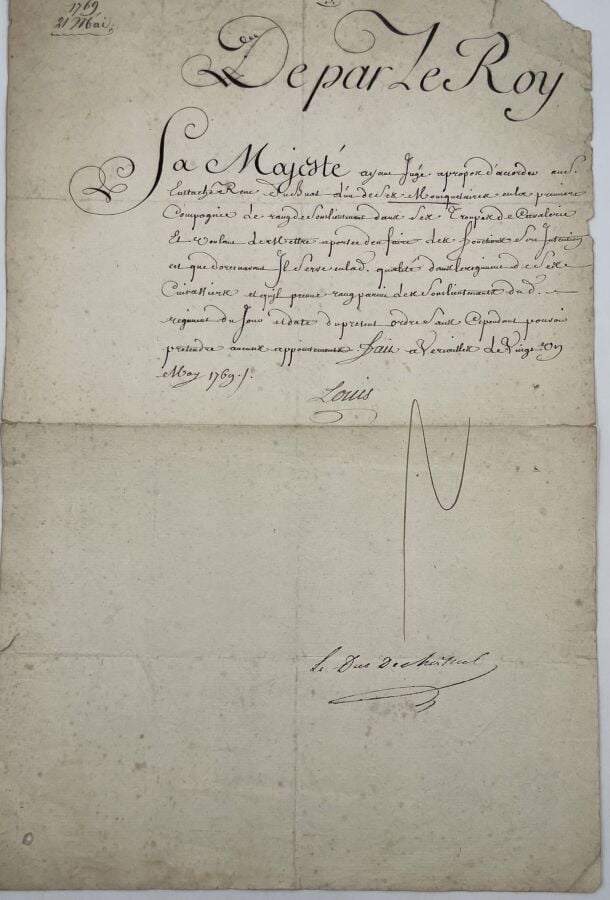 1769
21 Mai.
De par Le Roy
Sa Majesté ayant Jugé apropos d'accorder au S.
Eustache René Du Buat l'un de Ses Mousquetaires en la premiere
Compagnie le rang de Souslieutenant dans Ses Troupes de Cavalerie
Et voulant le Mettre aportée d'en faire les fonctions Son Intention
est que doresnavant Il Serve en lad. qualité dans le regiment de Ses
Cuirassiers et qu'il prenne rang parmi les Souslieutenants du d.
regiment du Jour et date du present ordre Sans Cependant pouvoir
pretendre aucuns appointements. Fait a Versailles le Vingt Un
May 1769./.
Louis
Le Duc De Choiseul